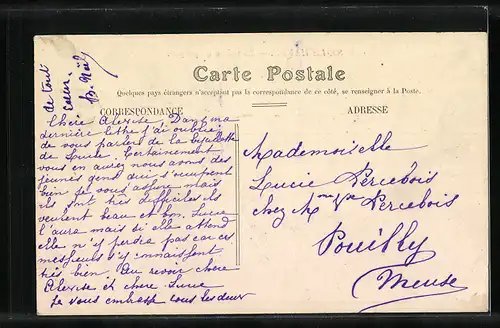 Carte Postale
Quelques pays étrangers n'acceptant pas la correspondance de ce côté, se renseigner à la Poste.
CORRESPONDANCE
Chère Alexise, Dans ma
dernière lettre j'ai oublié
de vous parler de la
de Lucie. Certainement
vous en aurez nous avons des
jeunes gens qui s'occupent
bien je vous assure mais
ils sont très difficiles ils
veulent beau et bon. Lucie
l'aura mais si elle attend
elle n'y perdra pas car ces
messieurs s'y connaissent
très bien. Au revoir chère
Alexise et chère Lucie
Je vous embrasse tous les deux
de tout
cœur
ADRESSE
Mademoiselle
Lucie Percebois
chez Mme Vve Percebois
Pouilly
Meuse